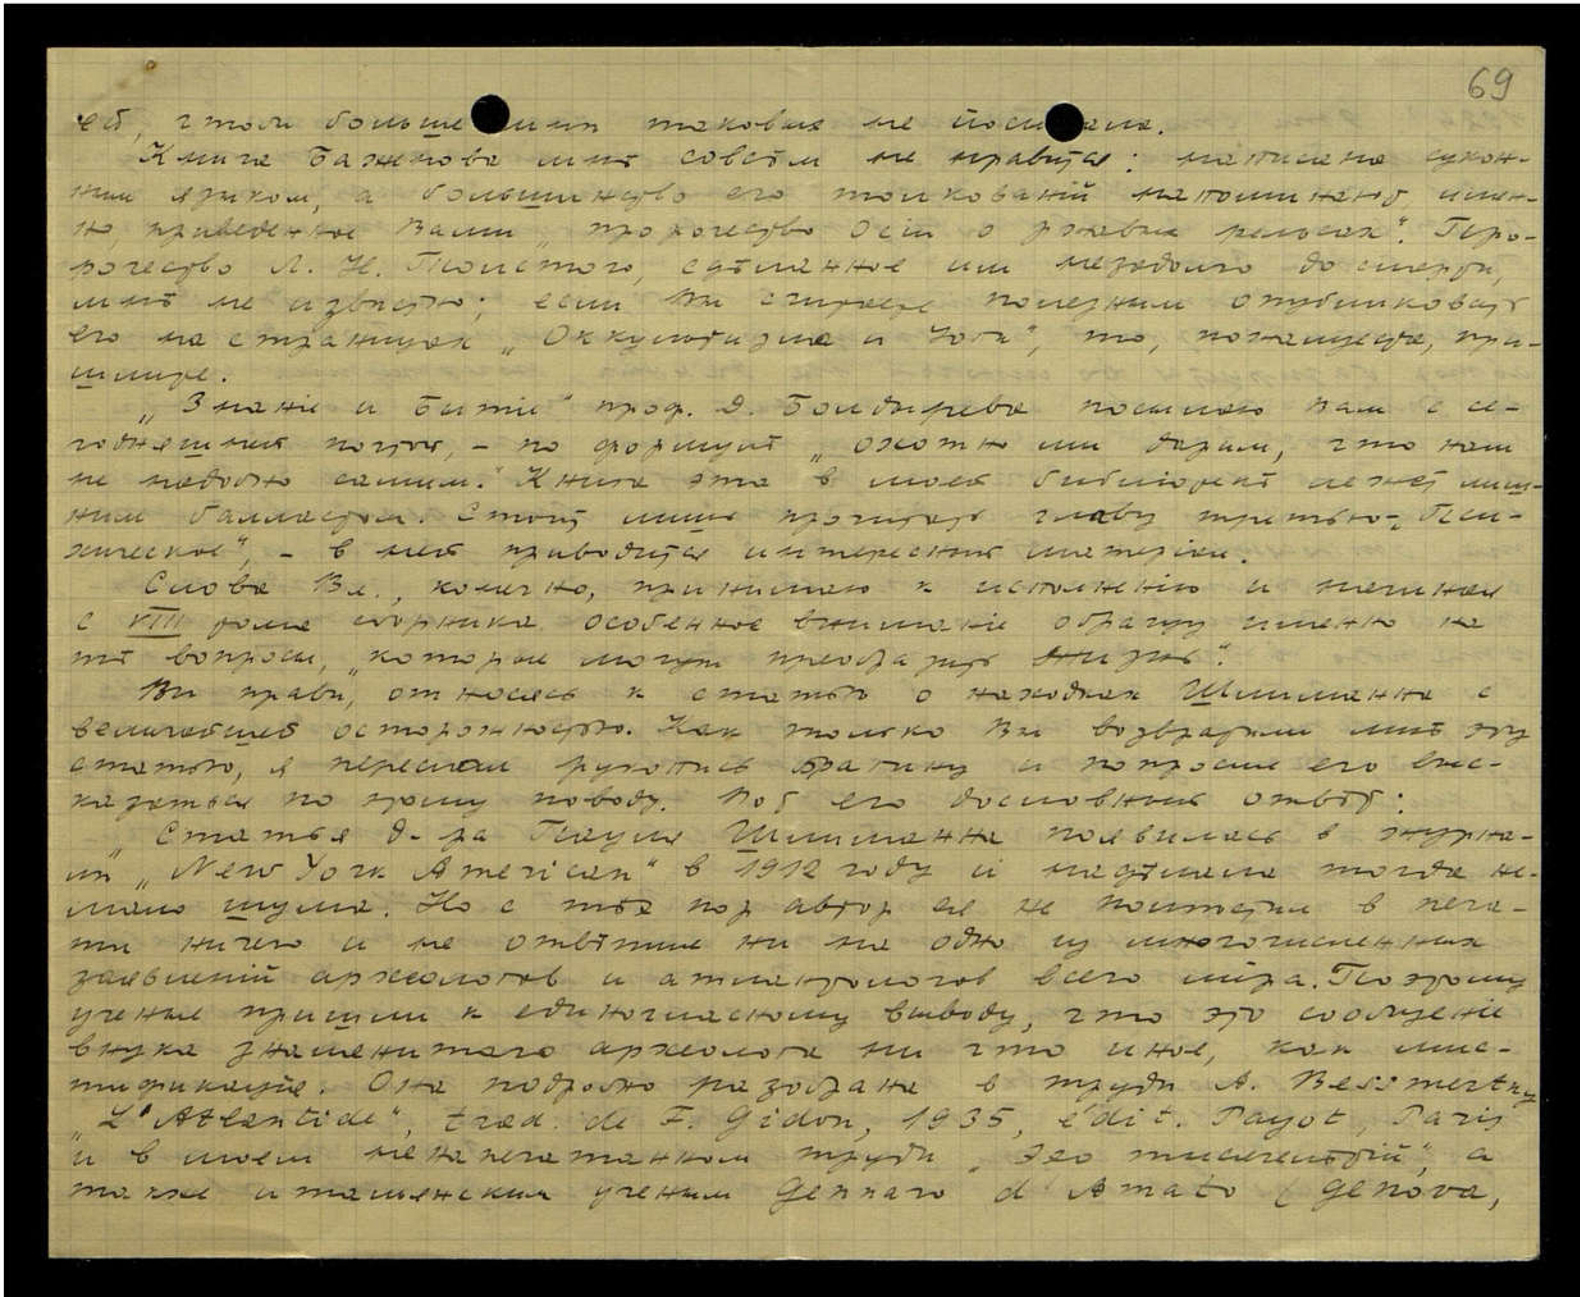 69
ей, чтобы больше мнѣ таковых не посылала.
Книга Баженова мнѣ совсѣм не нравится: написана сухон-
ным языком, а большинство его толкованій напоминают имен-
но, приведенное Вами „пророчество Осіи о ржавых рельсах“. Про-
рочество Л. Н. Толстого, сдѣланное им незадолго до смерти,
мнѣ не извѣстно; если Вы считаете полезным опубликовать
его на страницах „Оккультизма и Іоги“, то, пожалуйста, при-
шлите.
„Знаніе и Бытіе“ проф. Д. Болдырева посылаю Вам с се-
годняшней почтой, – по формулѣ „охотно мы дарим, что нам
не надобно самим.“ Книга эта в моей библіотекѣ лежит лиш-
ним балластом. Стоит лишь прочитать главу третью – „Пси-
хическое“, – в ней приводится интересный матеріал.
Слова Вл., конечно, принимаю к исполненію и начиная
с VIII тома сборника особенное вниманіе обращу именно на
тѣ вопросы, „которые могут преобразить жизнь“.
Вы правы, относясь к статьѣ о находках Шлиманна с
величайшей осторожностью. Как только Вы возвратили мнѣ эту
статью, я переслал рукопись братику и попросил его выс-
казаться по этому поводу. Вот его дословный отвѣт:
„Статья д-ра Пауля Шлиманна появилась в журна-
лѣ „New York American“ в 1912 году и надѣлала тогда не-
мало шума. Но с тѣх пор автор ея не помѣстил в печа-
ти ничего и не отвѣтил ни на одно из многочисленных
заявленій археологов и атлантологов всего міра. Поэтому
ученые пришли к единогласному выводу, что это сообщеніе
внука знаменитаго археолога ни что иное, как мис-
тификація. Она подробно разобрана в трудѣ A. Bessmertny
„L'Atlantide“, trad. de F. Gidon, 1935, édit. Payot, Paris
и в моем ненапечатанном трудѣ „Эхо тысячелѣтій“, а
также италіянским ученым Gennaro d'Amato (Genova,